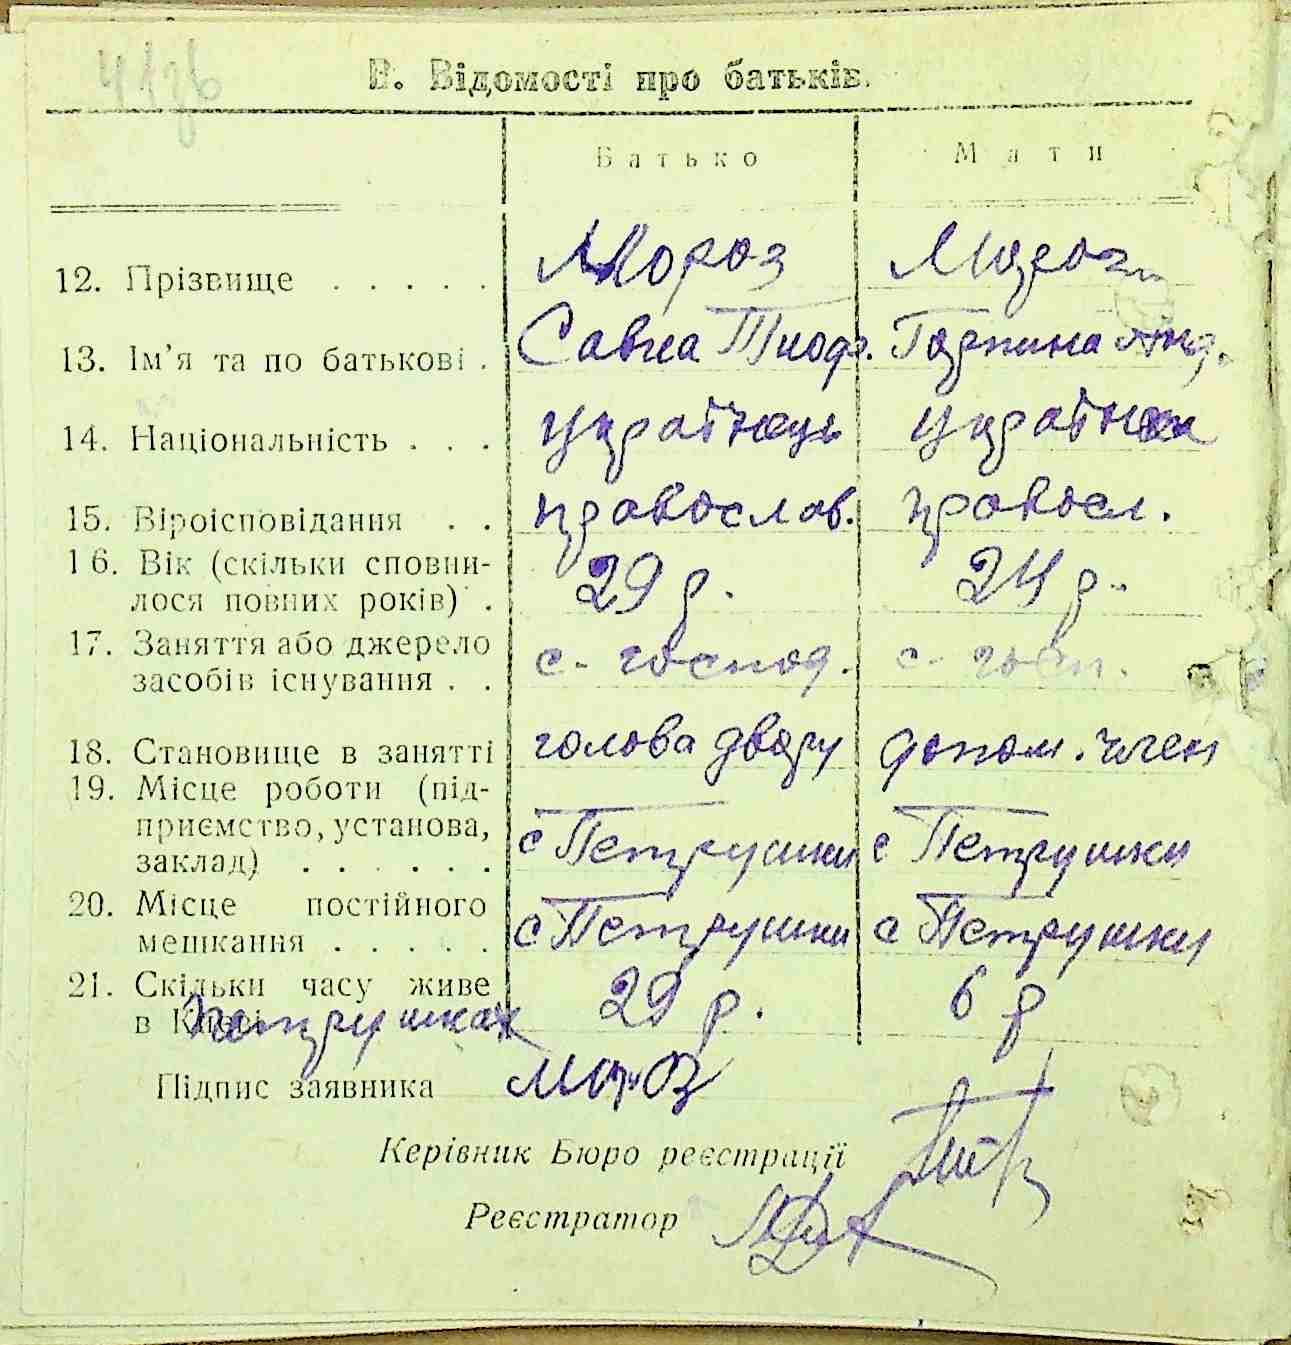 В. Відомості про батьків.
Батько Мати
12. Прізвище . . . . . Мороз Мороз
13. Ім'я та по батькові . Савка Тиоф. Гарпина Анд.
14. Національність . . . українець українка
15. Віроісповідання . . православ. правосл.
16. Вік (скільки сповни-
лося повних років) . 29 р. 24 р.
17. Заняття або джерело
засобів існування . . с-господ. с-госп.
18. Становище в занятті голова двору допом. член
19. Місце роботи (під-
приємство, установа,
заклад) . . . . . . с Петрушки с Петрушки
20. Місце постійного
мешкання . . . . . с Петрушки с Петрушки
21. Скільки часу живе
в Києві Петрушках 29 р. 6 р
Підпис заявника Мороз
Керівник Бюро реєстрації
Реєстратор